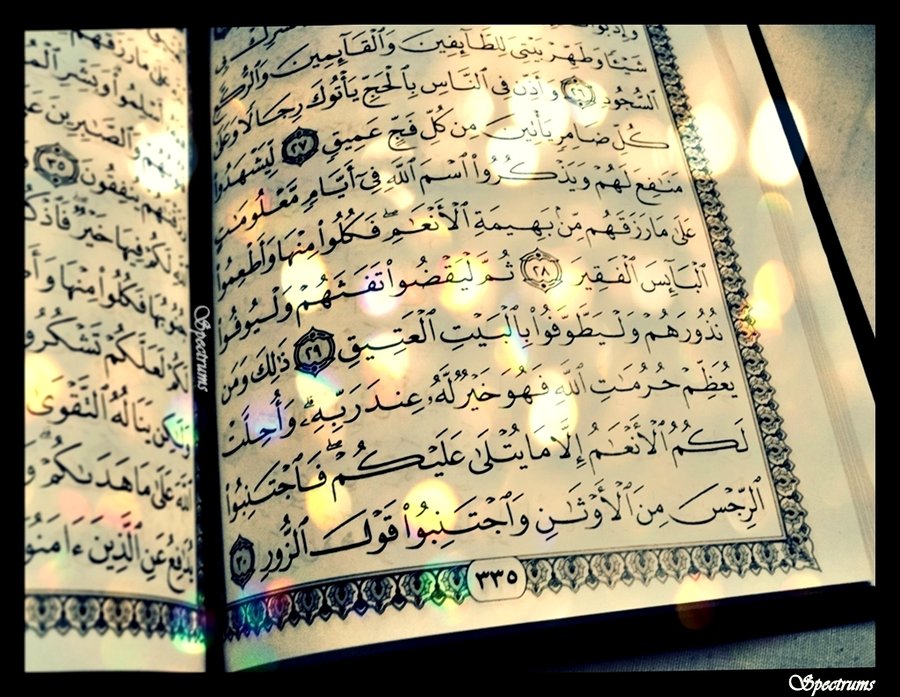 شَيۡـٔٗا وَطَهِّرۡ بَيۡتِيَ لِلطَّآئِفِينَ وَٱلۡقَآئِمِينَ وَٱلرُّكَّعِ
ٱلسُّجُودِ ٢٦ وَأَذِّن فِي ٱلنَّاسِ بِٱلۡحَجِّ يَأۡتُوكَ رِجَالٗا وَعَلَىٰ
كُلِّ ضَامِرٖ يَأۡتِينَ مِن كُلِّ فَجٍّ عَمِيقٖ ٢٧ لِّيَشۡهَدُواْ
مَنَٰفِعَ لَهُمۡ وَيَذۡكُرُواْ ٱسۡمَ ٱللَّهِ فِيٓ أَيَّامٖ مَّعۡلُومَٰتٍ
عَلَىٰ مَا رَزَقَهُم مِّنۢ بَهِيمَةِ ٱلۡأَنۡعَٰمِۖ فَكُلُواْ مِنۡهَا وَأَطۡعِمُواْ
ٱلۡبَآئِسَ ٱلۡفَقِيرَ ٢٨ ثُمَّ لۡيَقۡضُواْ تَفَثَهُمۡ وَلۡيُوفُواْ
نُذُورَهُمۡ وَلۡيَطَّوَّفُواْ بِٱلۡبَيۡتِ ٱلۡعَتِيقِ ٢٩ ذَٰلِكَۖ وَمَن
يُعَظِّمۡ حُرُمَٰتِ ٱللَّهِ فَهُوَ خَيۡرٞ لَّهُۥ عِندَ رَبِّهِۦۗ وَأُحِلَّتۡ
لَكُمُ ٱلۡأَنۡعَٰمُ إِلَّا مَا يُتۡلَىٰ عَلَيۡكُمۡۖ فَٱجۡتَنِبُواْ
ٱلرِّجۡسَ مِنَ ٱلۡأَوۡثَٰنِ وَٱجۡتَنِبُواْ قَوۡلَ ٱلزُّورِ ٣٠
٣٣٥
عَلَىٰ مَا رَزَقَهُم
أَسۡلِمُواْۗ وَبَشِّرِ
وَٱلصَّٰبِرِينَ
يُنفِقُونَ ٣٥
لَكُمۡ فِيهَا خَيۡرٞۖ
فَكُلُواْ مِنۡهَا
لَعَلَّكُمۡ تَشۡكُرُو
وَلَٰكِن يَنَالُهُ ٱلتَّقۡوَىٰ
ٱللَّهَ عَلَىٰ مَا هَدَىٰكُمۡۗ
يُدَٰفِعُ عَنِ ٱلَّذِينَ ءَامَنُو
Spectrums
Spectrums